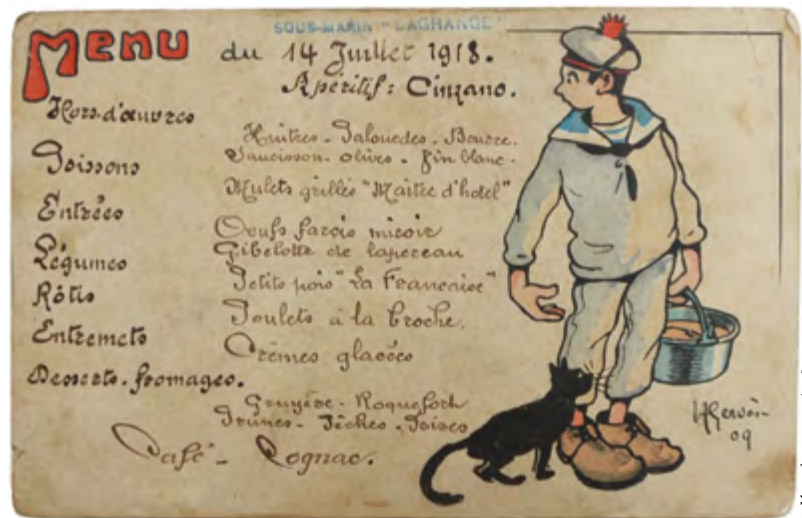 SOUS-MARIN "LAGRANGE"
Menu du 14 Juillet 1918.
Apéritif: Cinzano.
Hors-d'œuvres
Huîtres - Palourdes - Beurre.
Saucisson - Olives - Vin blanc -
Poissons
Mulets grillés "Maître d'hotel"
Entrées
Oeufs farcis miroir
Gibelotte de lapereau
Légumes
Petits pois "La Française"
Rôtis
Poulets à la broche.
Entremets
Crèmes glacées
Desserts. fromages.
Gruyère - Roquefort
Prunes - Pêches - Poires
Café - Cognac.
HGervèse
09